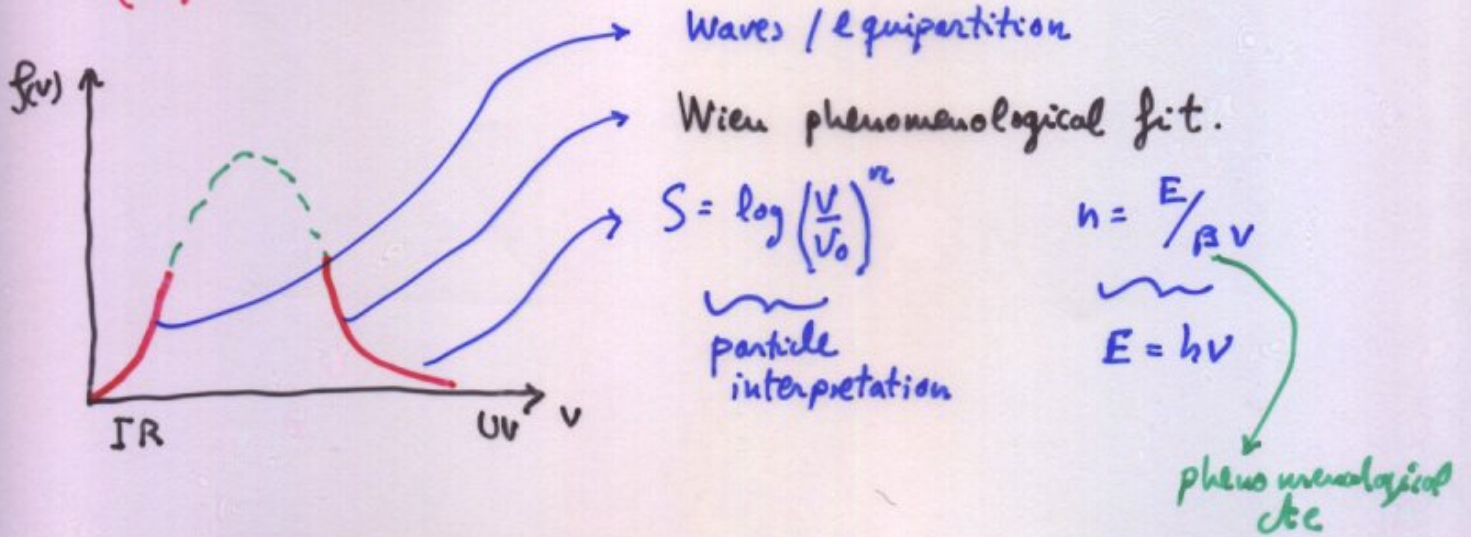 Waves / equipartition
f(ν)
Wien phenomenological fit.
S = log (V/V₀)ⁿ
n = E/βν
particle
interpretation
E = hν
IR
UV
ν
phenomenological
cte